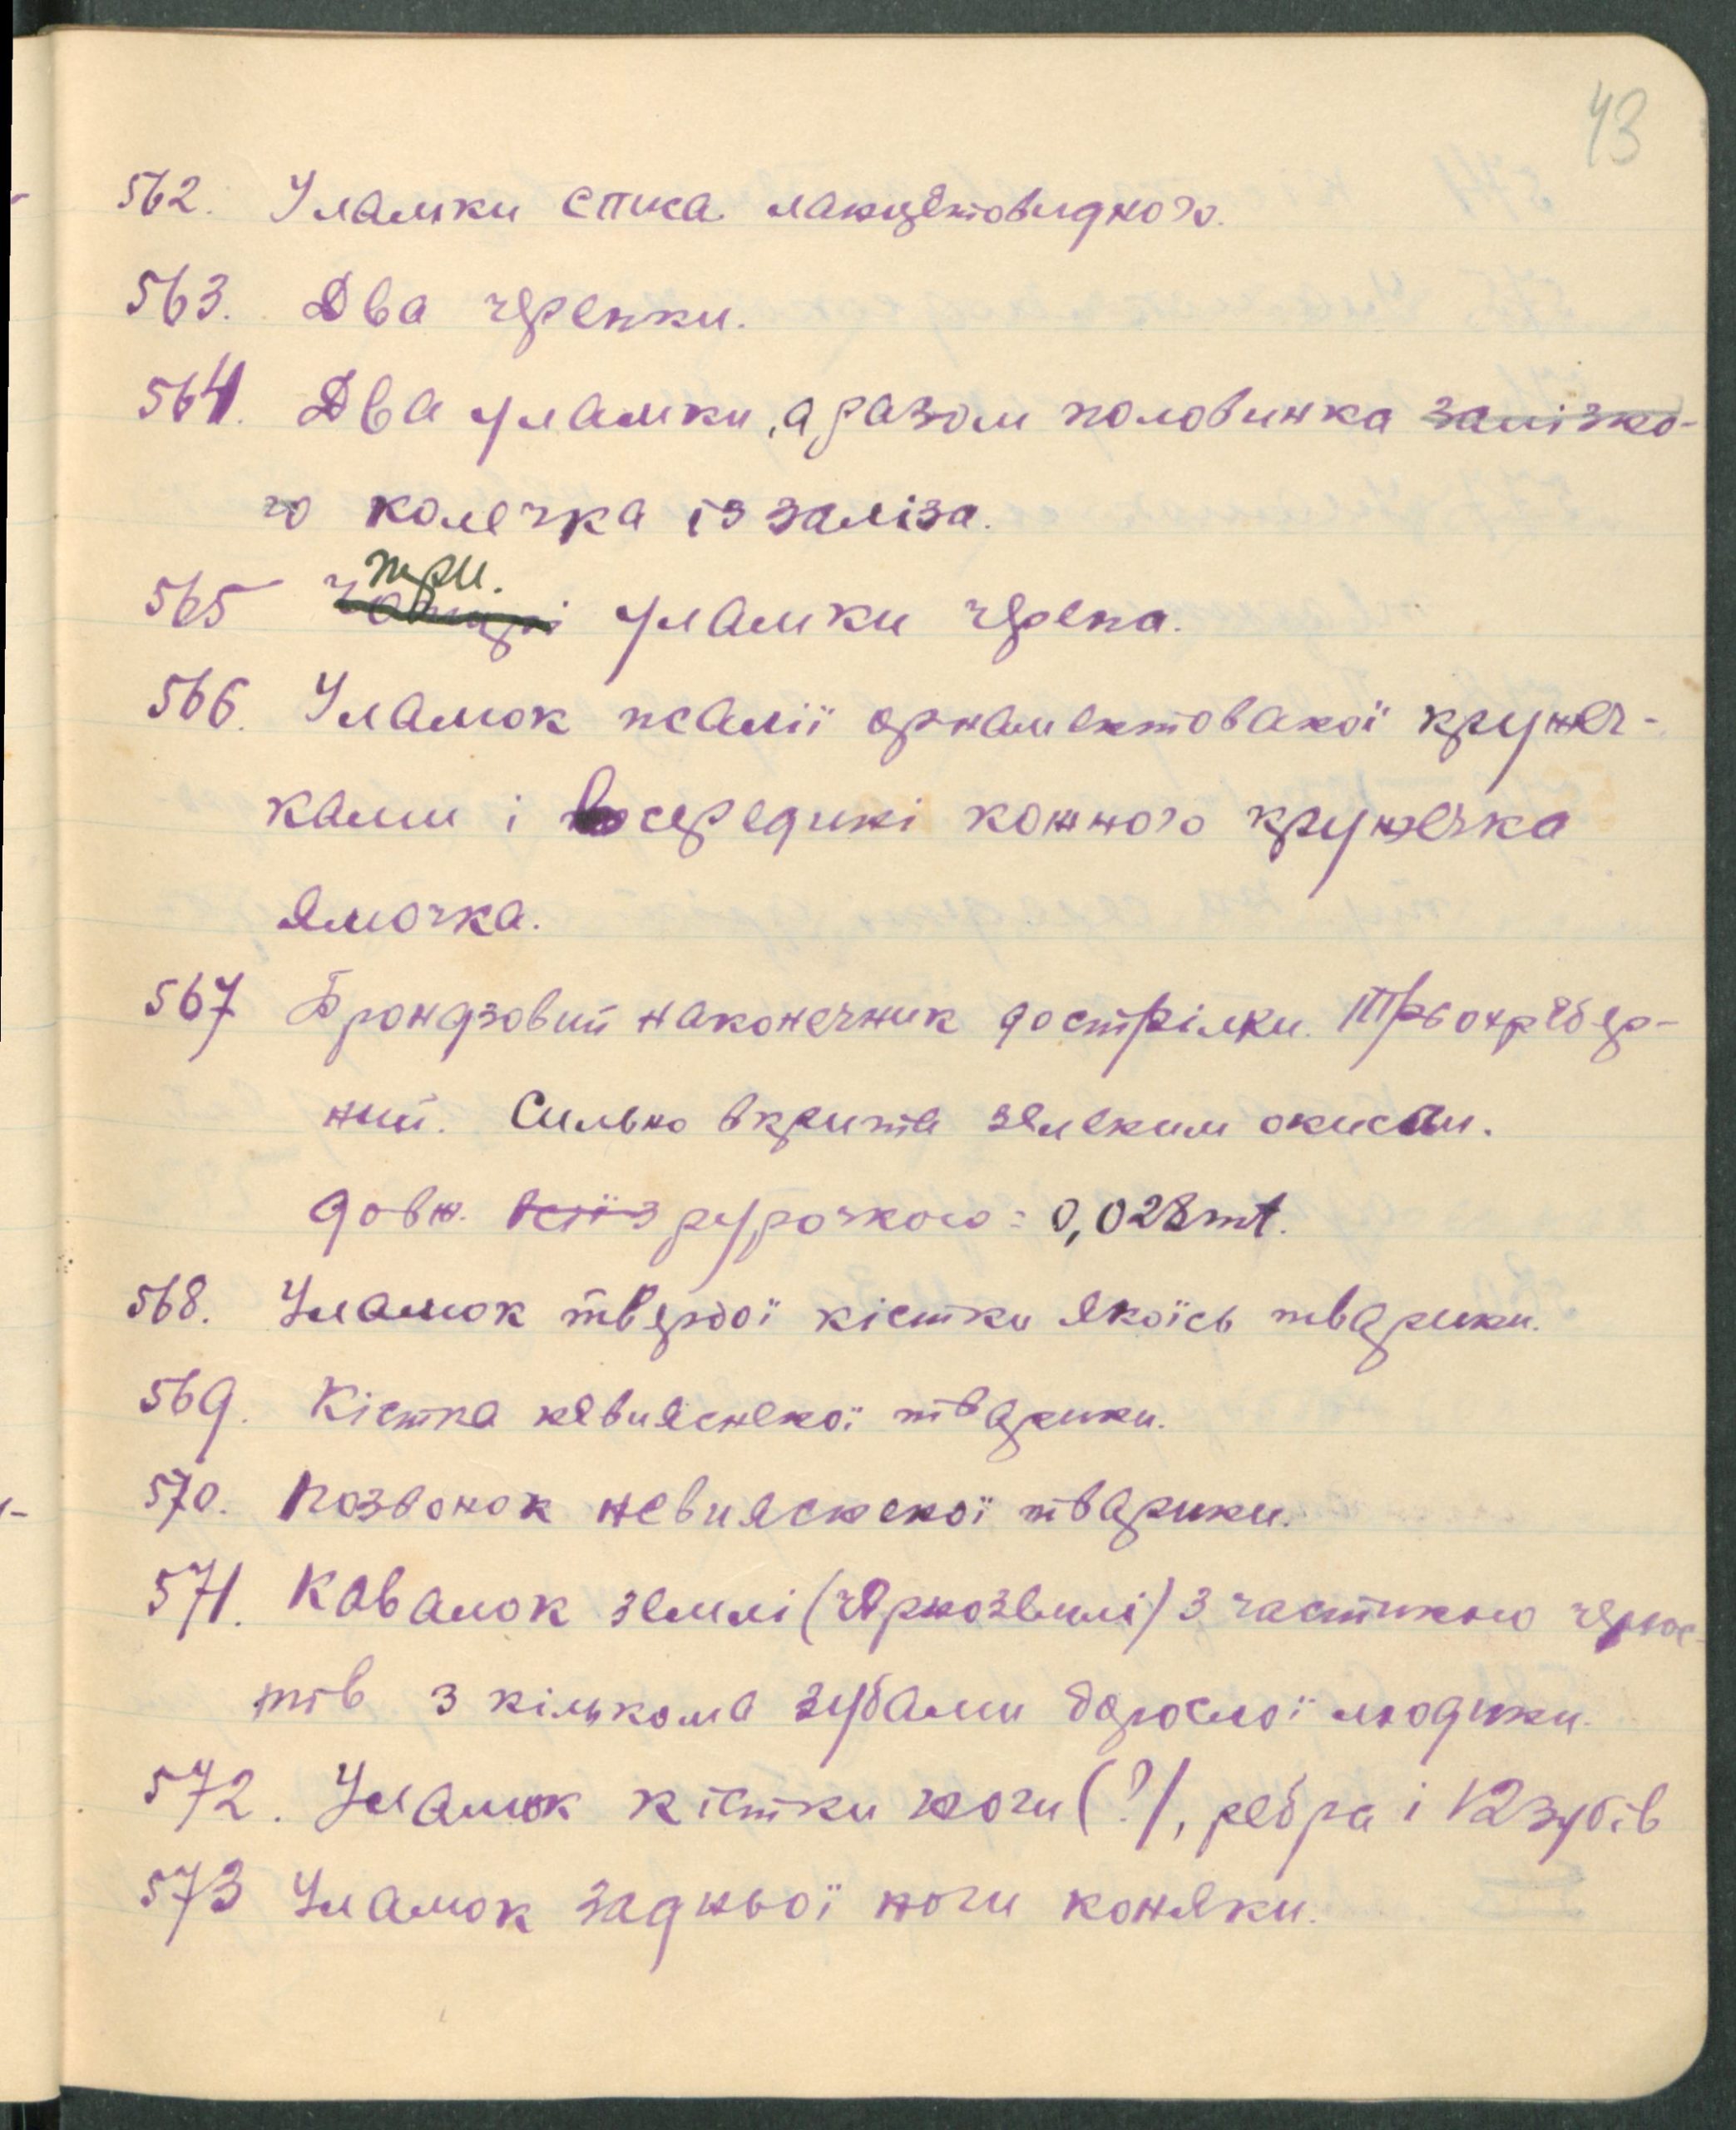 43
562. Уламки списа ланцетовидного.
563. Два черепки.
564. Два уламки, а разом половинка залізно-
го колечка із заліза.
три.
565 Чотирі уламки черепа.
566. Уламок псалії орнаментованої кружеч-
ками і всередині кожного кружечка
ямочка.
567 Брондзовий наконечник до стрілки. Трьохребер-
ний. Сильно вкрите зеленим окисом.
довж. всіїз рурочкою = 0,028 mt.
568. Уламок твердої кістки якоїсь тварини.
569. Кістка невиясненої тварини.
570. Позвонок невиясненої тварини.
571. Кавалок землі (чорноземлі) з частиною челюс-
тів з кількома зубами дорослої людини.
572. Уламок кістки ноги (?), ребра і 12 зубів
573 Уламок задньої ноги коняки.